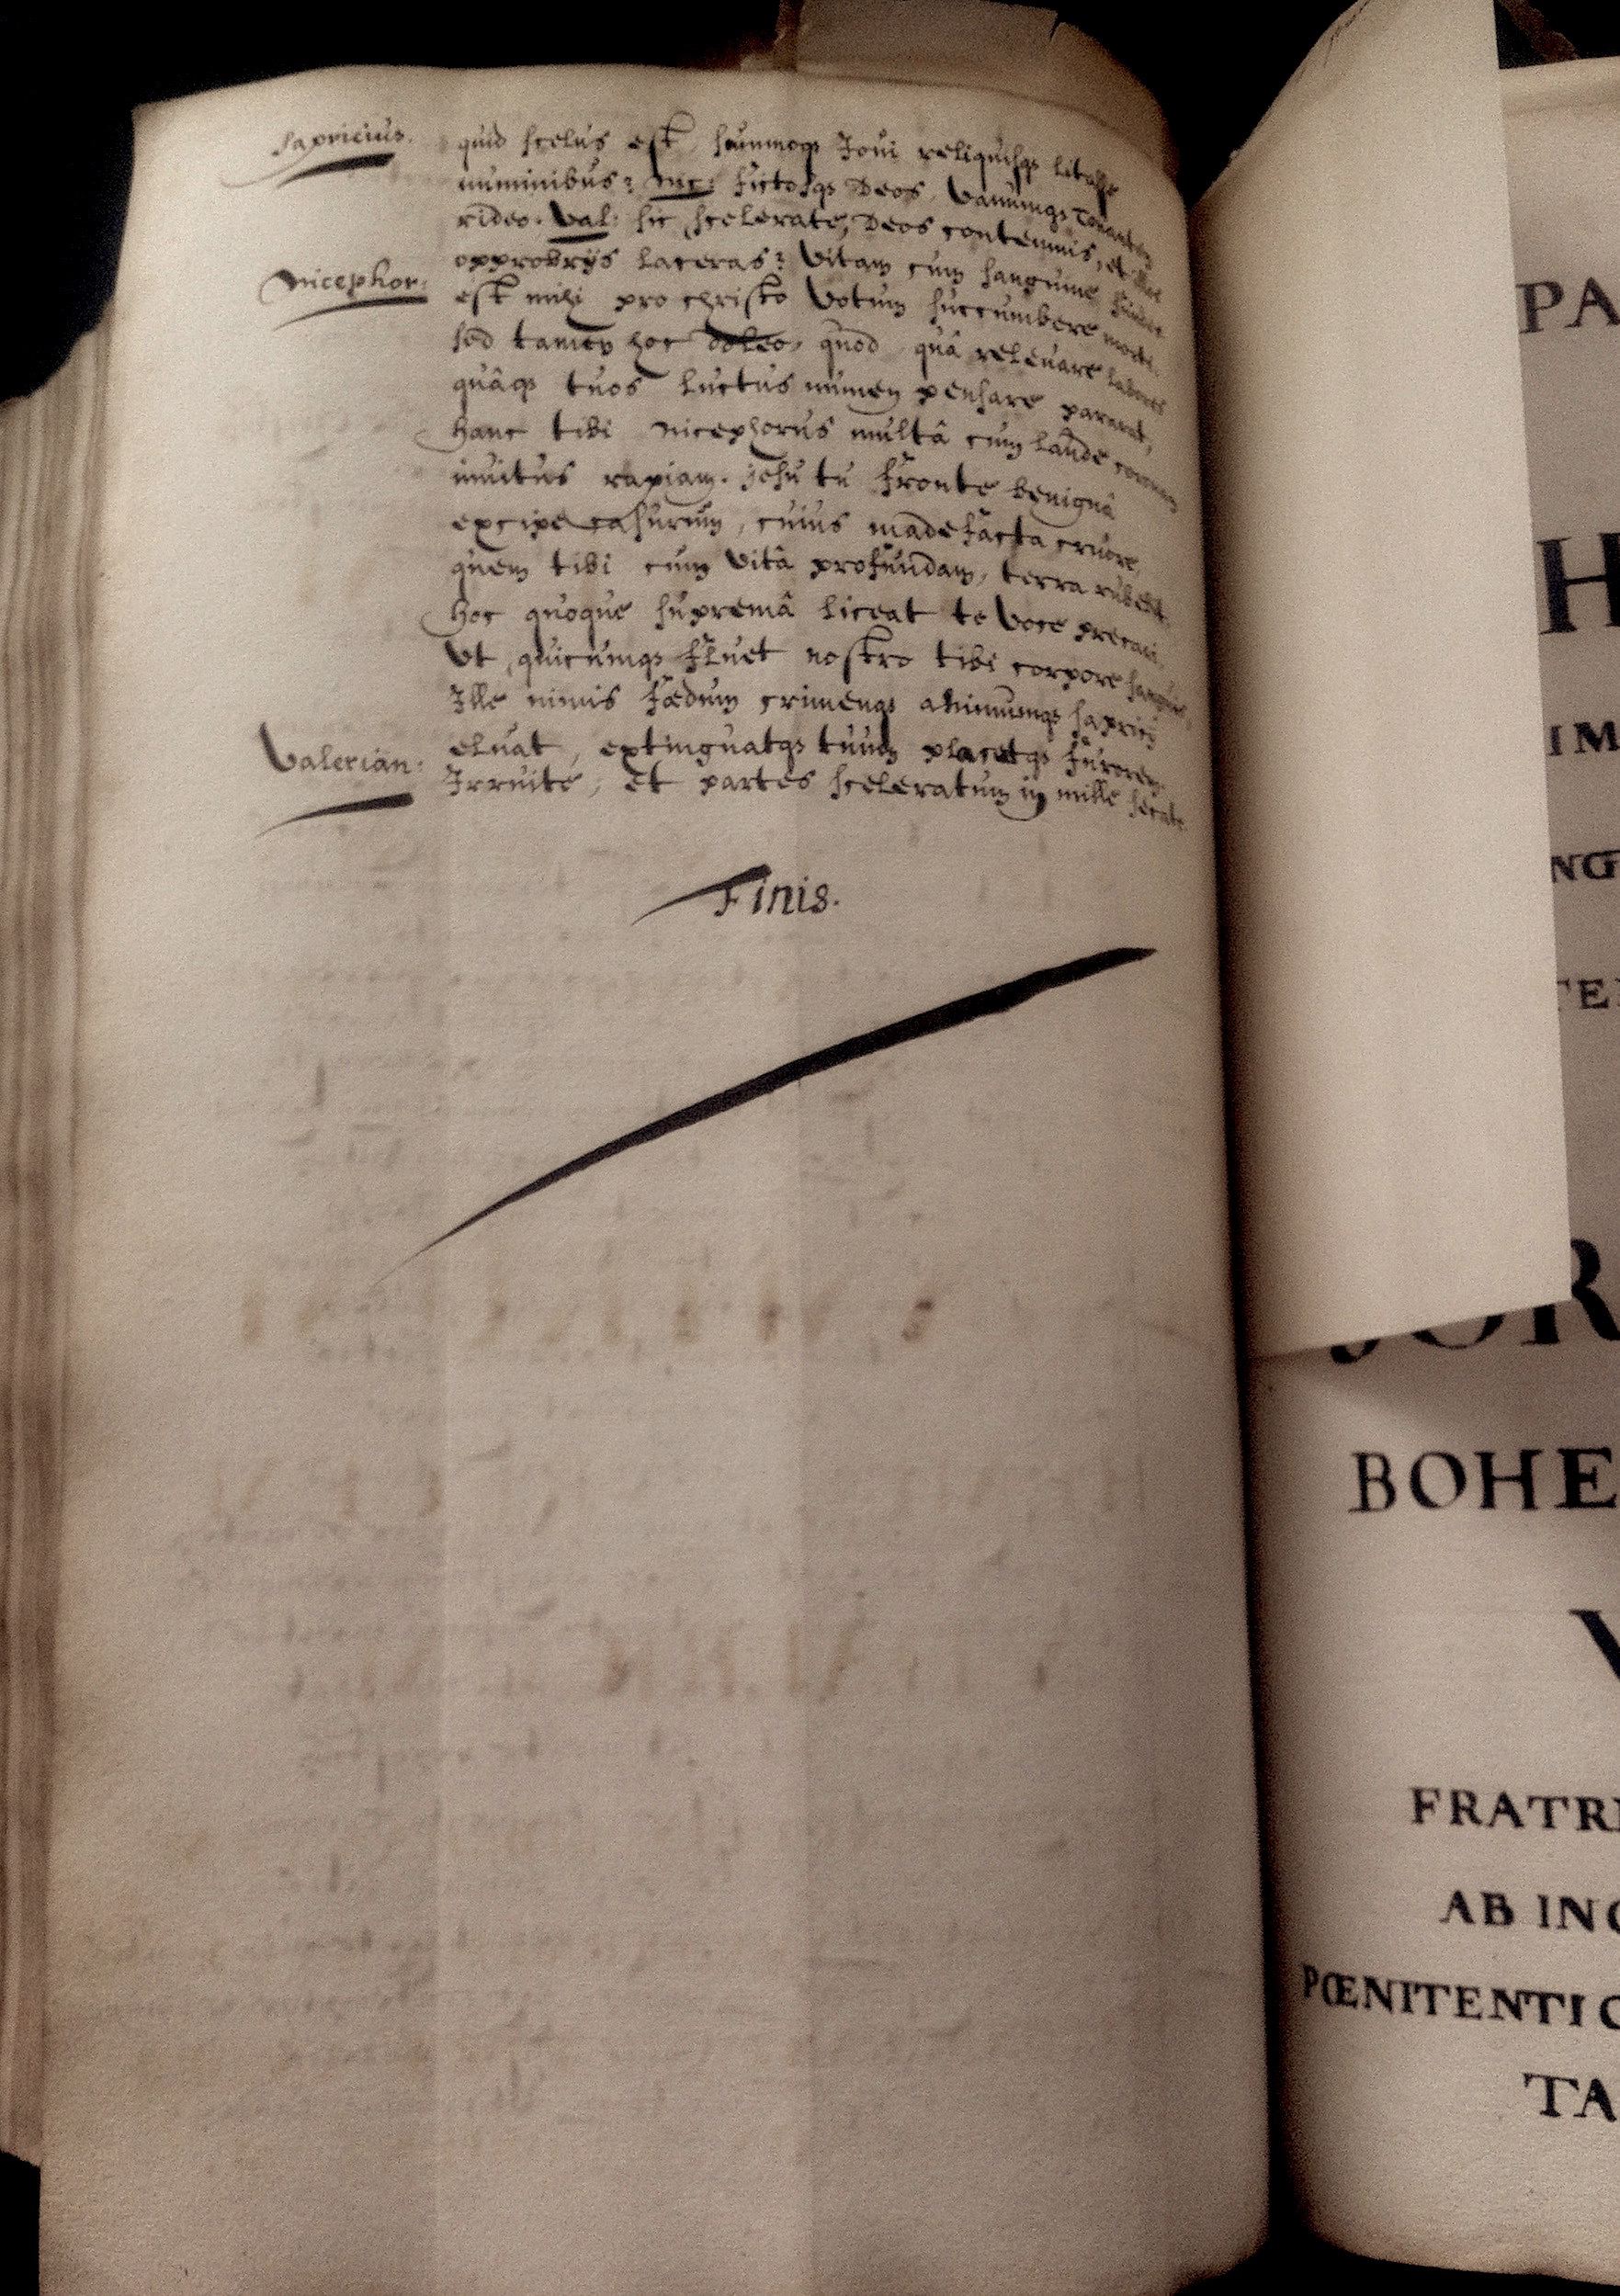 Sapricius. quid scelus est, summoq3 Joui reliquisq3 litasse
numinibus? Nic: fictosq3 Deos, vanumq3 Tonantem
rideo. Val: sic, scelerate, Deos contemnis, et
opprobrijs laceras? vitam cum sanguine funde.
Nicephor: est mihi pro christo votum succumbere morti.
sed tamen hoc doleo, quod quâ releuare labores
quâq3 tuos luctus numen pensare pararat,
hanc tibi Nicephorus multâ cum laude coronam
inuitus rapiam. Jesu tu fronte benignâ
excipe casurum, cuius madefacta cruore,
quem tibi cum vitâ profundam, terra rubebit.
hoc quoque supremâ liceat te voce precari,
Vt, quicumq3 fluet nostro tibi corpore sanguis,
Ille nimis fœdum crimenq3 animumq3 sapricij
eluat, extinguatq3 tuum placetq3 furorem.
Valerian: Irruite, et partes sceleratum in mille secate.
Finis.
PA
H
IM
NG
TE
JOR
BOHE
V
FRATR
AB INC
PŒNITENTI
TA